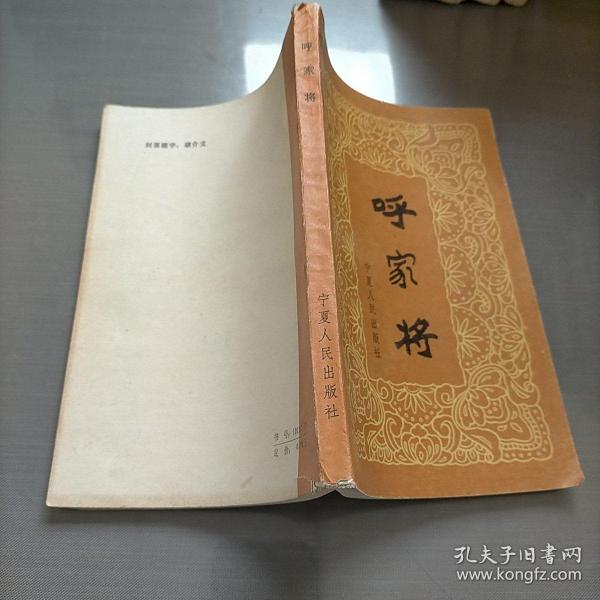 呼家将
宁夏人民出版社
呼家将
宁夏人民出版社
封面题字:胡介文
书号:
定价:
孔夫子旧书网
www.kongfz.com